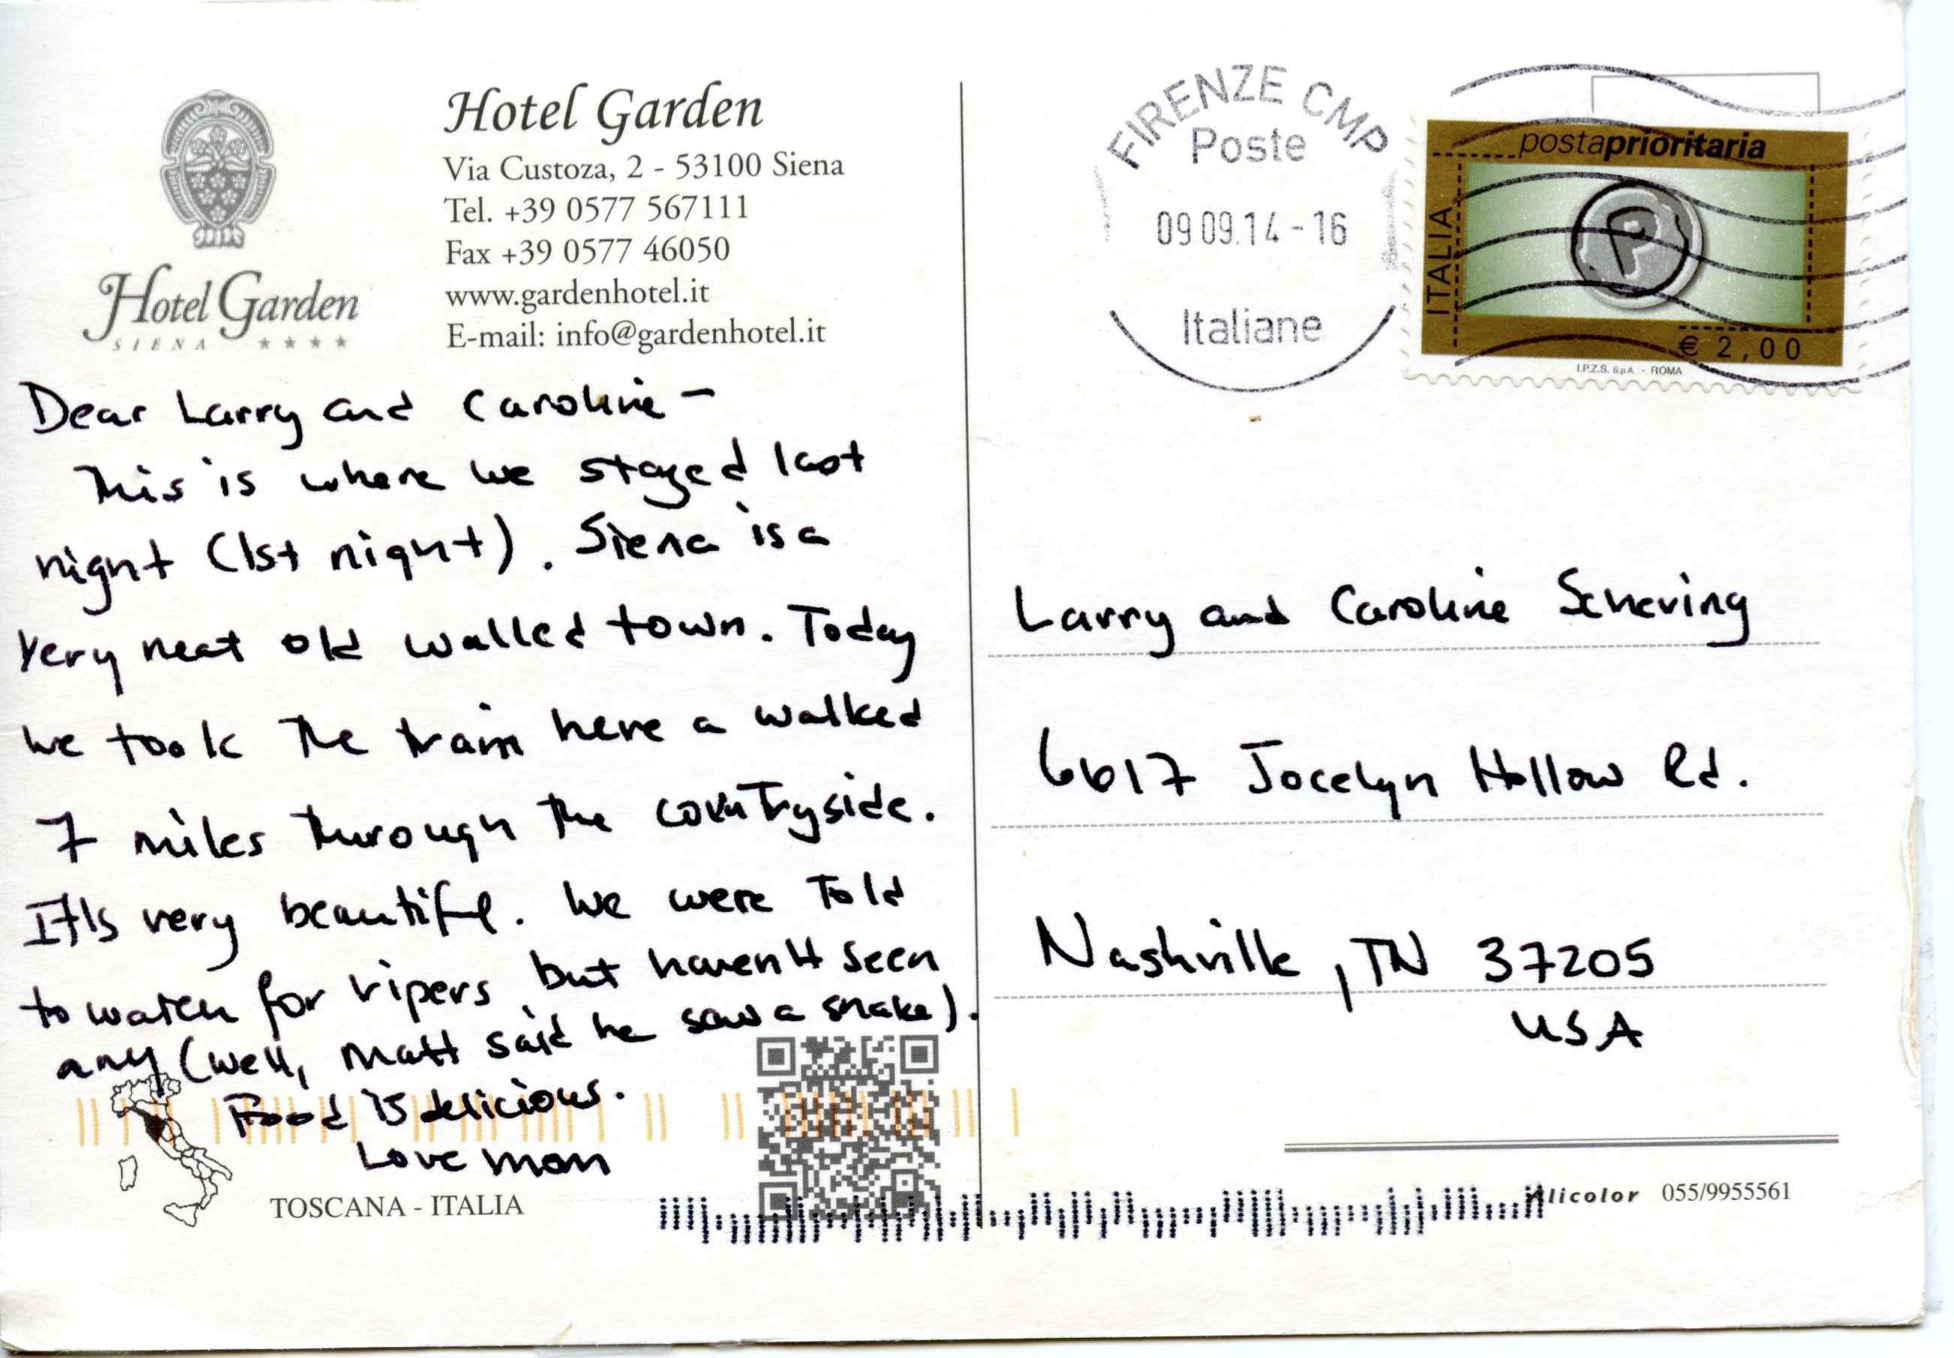 Hotel Garden
Via Custoza, 2 - 53100 Siena
Tel. +39 0577 567111
Fax +39 0577 46050
www.gardenhotel.it
E-mail: info@gardenhotel.it
Hotel Garden
SIENA ★★★★
Dear Larry and Caroline –
This is where we stayed last
night (1st night). Siena is a
very neat old walled town. Today
we took the train here a walked
7 miles through the countryside.
It's very beautiful. We were told
to watch for vipers, but haven't seen
any (well, Matt said he saw a snake).
Food is delicious.
Love Mom
TOSCANA - ITALIA
FIRENZE CMP
Poste
09 09.14 - 16
Italiane
postaprioritaria
ITALIA
P
€ 2,00
I.P.Z.S. S.p.A. - ROMA
Larry and Caroline Scheving
6617 Jocelyn Hollow Rd.
Nashville, TN 37205
USA
Alicolor 055/9955561